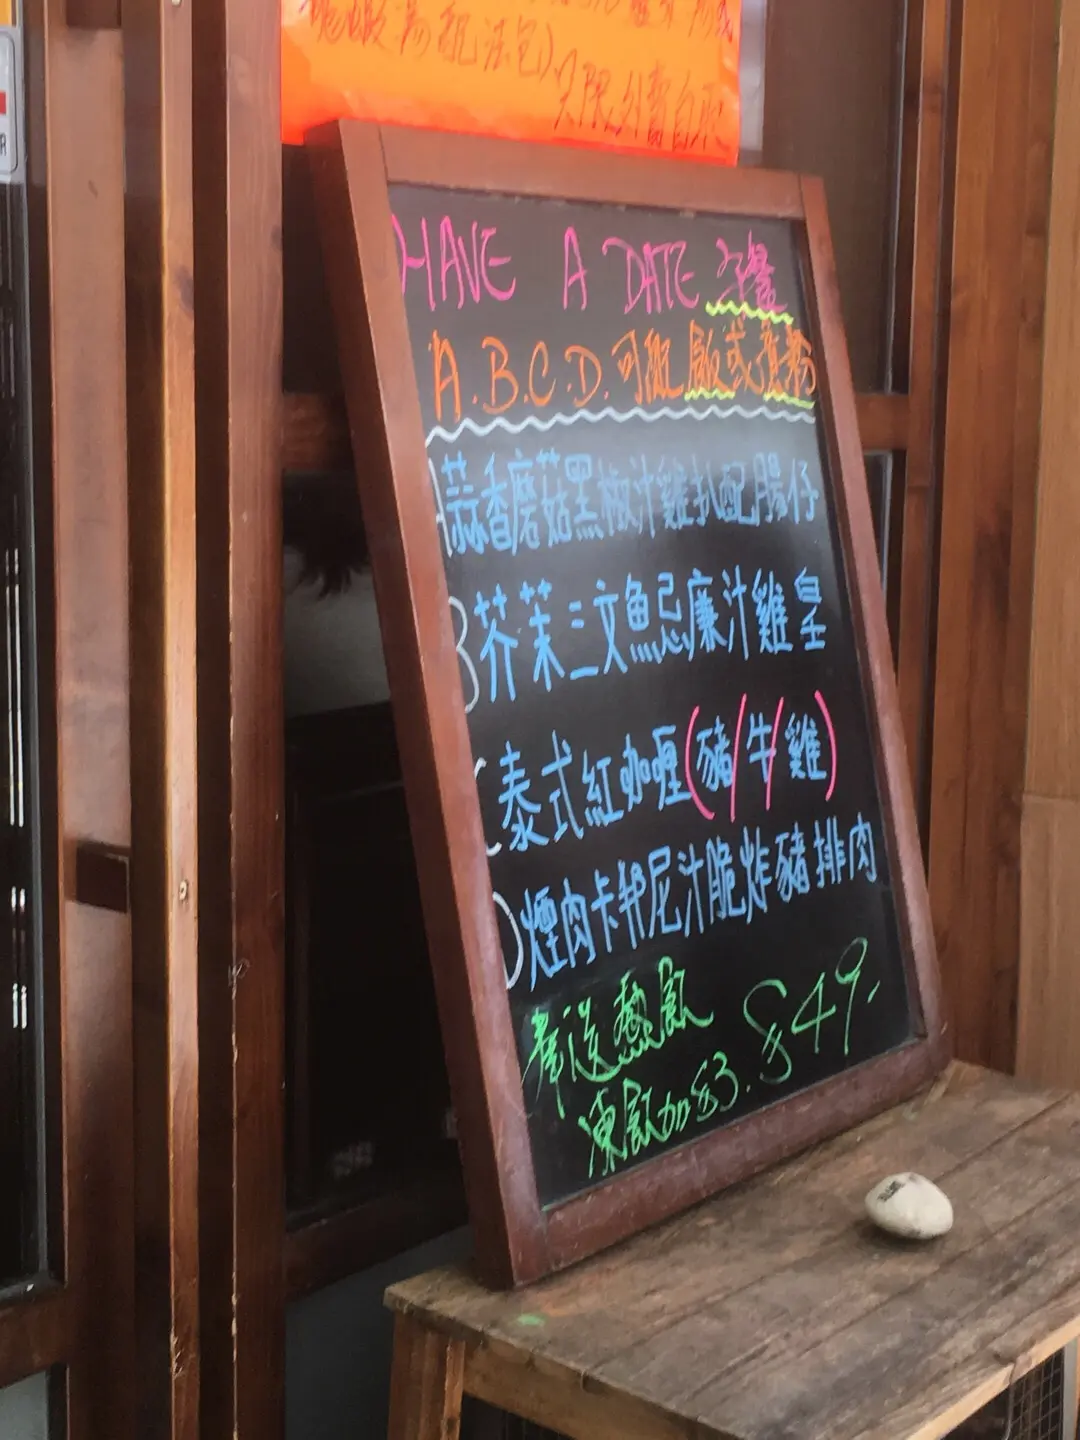 燒酸湯配法包)
只限外賣自取
HAVE A DATE 午餐
A.B.C.D.可配飯或意粉
A蒜香磨菇黑椒汁雞扒配腸仔
B芥茉三文魚忌廉汁雞皇
C泰式紅咖喱(豬/牛/雞)
D煙肉卡邦尼汁脆炸豬排肉
奉送熱飲
凍飲加$3. $49.